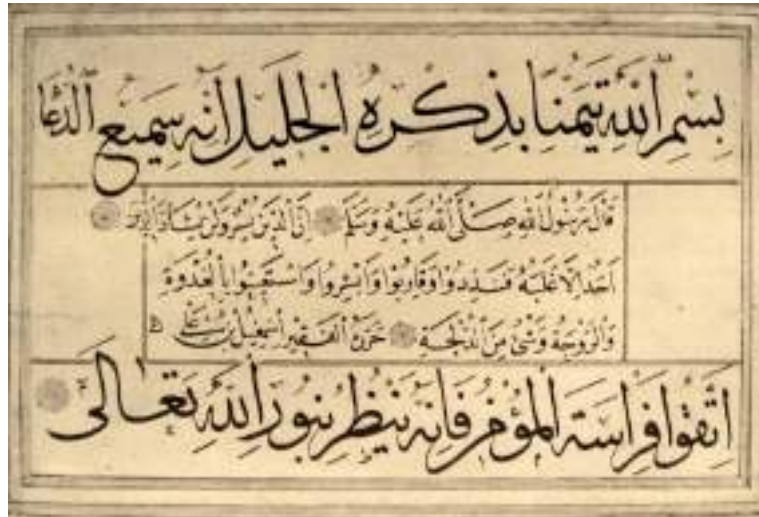 بسم الله تيمنا بذكره الجليل انه سميع الدعا
قال رسول الله صلى الله عليه وسلم ان الدين يسر ولن يشاد الدين
احد الا غلبه فسددوا وقاربوا وابشروا واستعينوا بالغدوة
والروحة وشئ من الدلجة حرره الفقير اسمعيل بن علي
اتقوا فراسة المؤمن فانه ينظر بنور الله تعالى